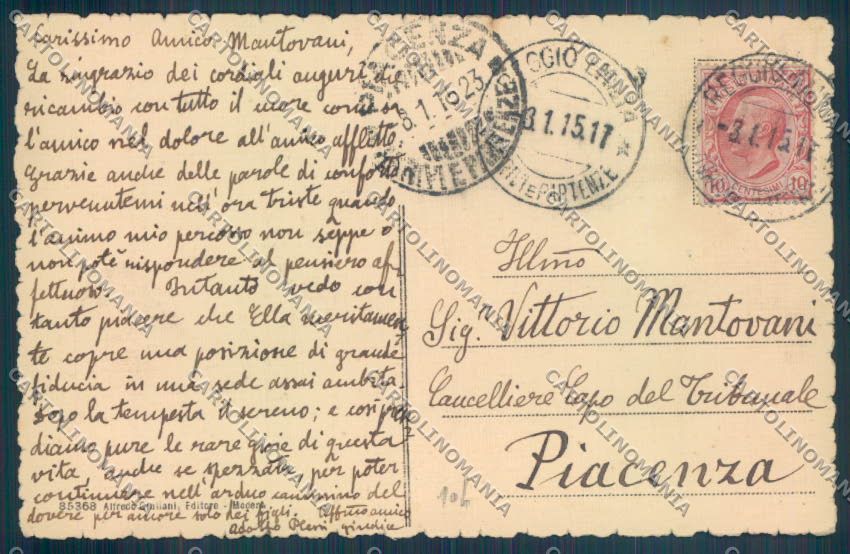 Carissimo Amico Mantovani,
La ringrazio dei cordiali auguri che
ricambio con tutto il cuore come si
l'amico nel dolore all'amico afflitto
Grazie anche delle parole di conforto
pervenutemi nell'ora triste quando
l'animo mio percosso non seppe o
non potè rispondere al pensiero af-
fettuoso. Intanto vedo con
tanto piacere che Ella meritamen-
te copre una posizione di grande
fiducia in una sede assai ambita.
Dopo la tempesta il sereno; e così go-
diamo pure le rare gioie di questa
vita, anche se spezzate per poter
continuare nell'arduo cammino del
dovere per amore solo dei figli. Affmo amico
giudice
85368 Alfredo Editore - Modena
PIACENZA
8.1.15.23
ARRIVI E PARTENZE
REGGIO EMILIA
3.1.15.17
ARRIVI E PARTENZE
REGGIO
-3.1.15.17
POSTE ITALIANE
10 CENTESIMI 10
Illmo
Sign. Vittorio Mantovani
Cancelliere Capo del Tribunale
Piacenza
CARTOLINOMANIA